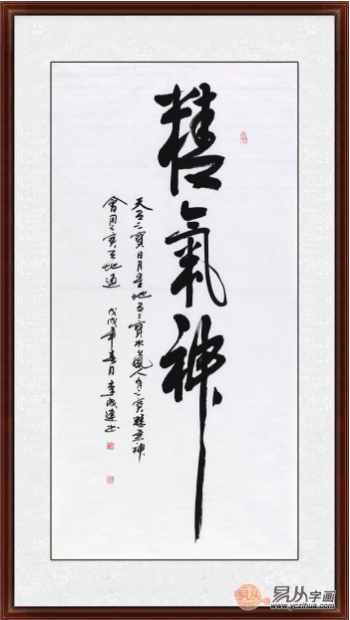 精氣神
天有三寶日月星地有三寶水火風人有三寶精氣神
會用三寶天地通 戊戌年春月李成連书
易从
易从字画
www.yczihua.com